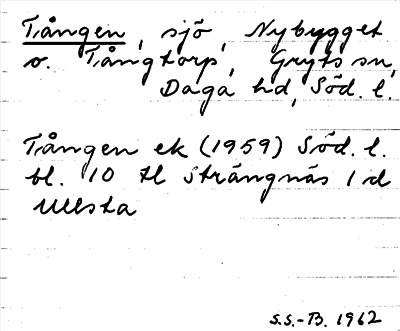 Tången, sjö, Nybygget
o. Tångtorp, Gryts sn,
Daga hd, Söd. l.
Tången ek (1959) Söd. l.
bl. 10 H Strängnäs 1 d
Ullsta
S.S.-B. 1962